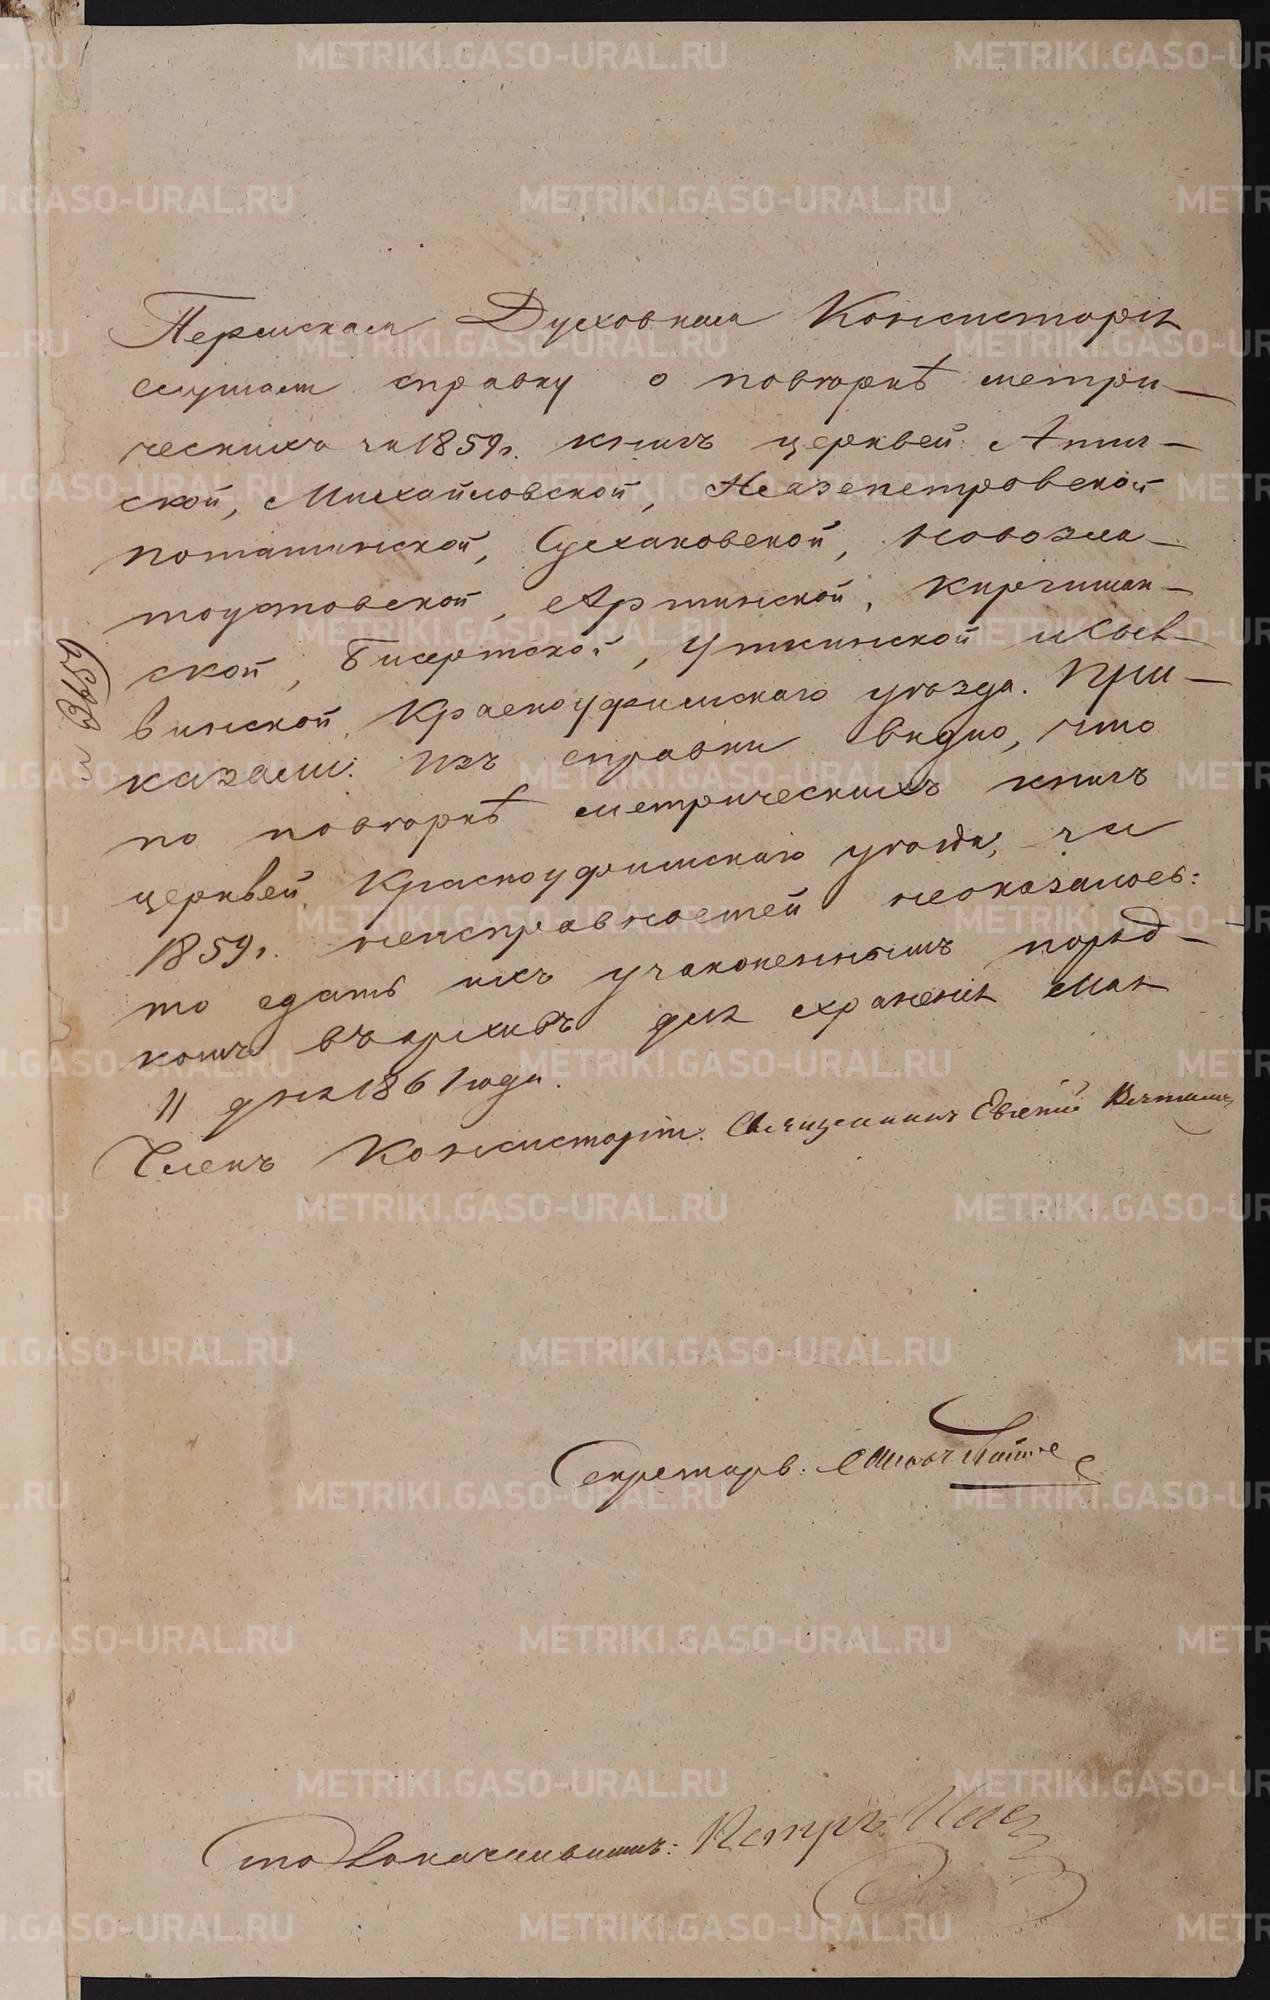 Пермская Духовная Консисторія
слушает справку о повѣркѣ метри-
ческихъ за 1859 г. книгъ церквей: Ачит-
ской, Михайловской, Нязепетровской
Поташинской, Сухановской, Новозла-
тоустовской, Артинской, Киргишан-
ской, Бисертской, Уткинской и Сыл-
винской, Красноуфимскаго уѣзда. При-
казали: Изъ справки видно, что
по повѣркѣ метрическихъ книгъ
церквей, Красноуфимскаго уѣзда, за
1859 г. неисправностей неоказалось:
то сдать ихъ узаконеннымъ поряд-
комъ въ архивъ для храненія Мая
11 дня 1861 года.
Членъ Консисторіи. Священникъ Евгеній
Секретарь:
Столоначальникъ: Петръ
METRIKI.GASO-URAL.RU